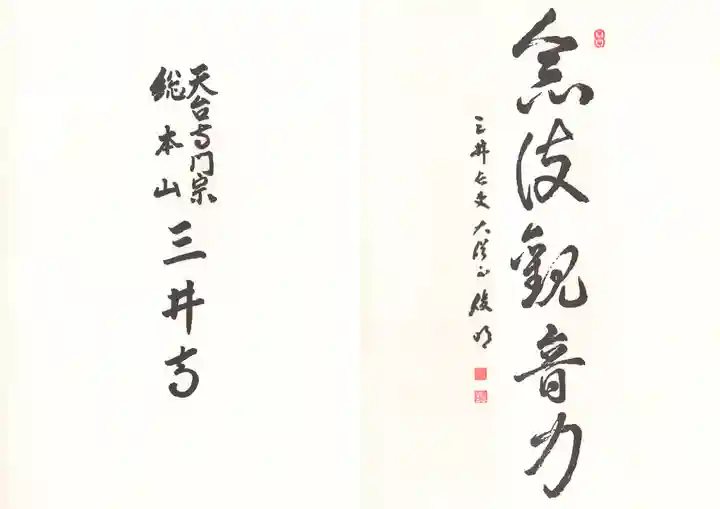 念彼観音力
三井長吏 大僧正 俊明
天台寺門宗
総本山
三井寺